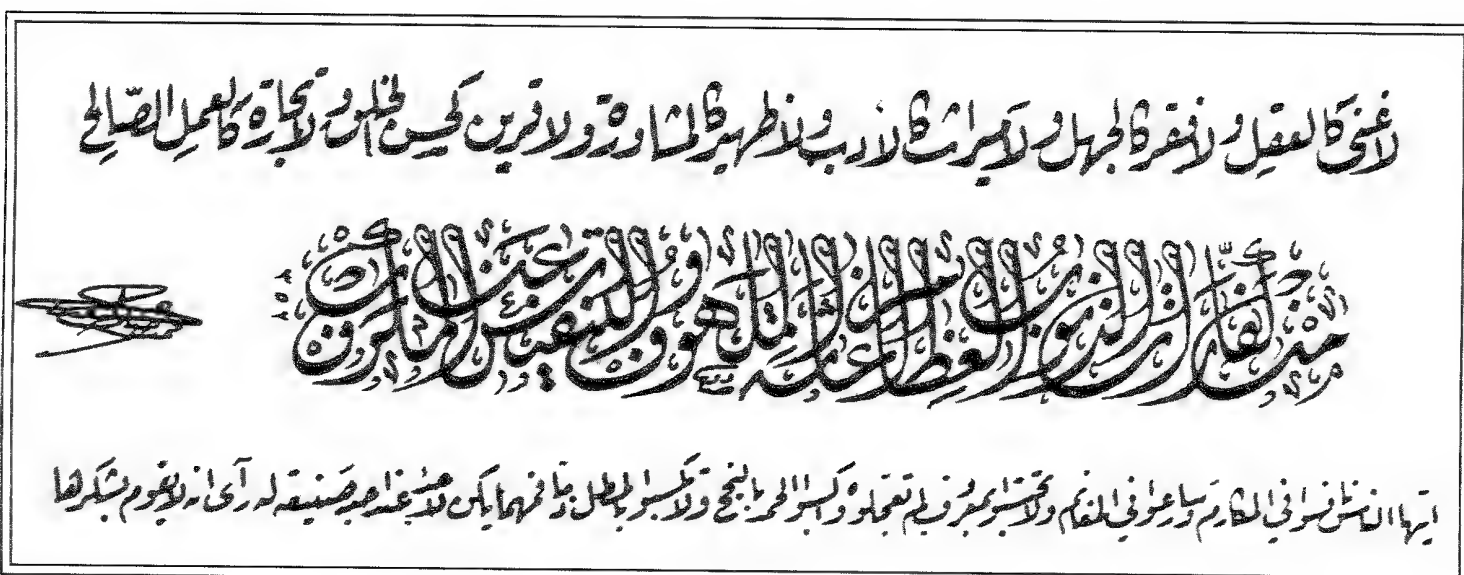 لا غنى كالعقل ولا فقر كالجهل ولا ميراث كالأدب ولا ظهير كالمشاورة ولا قرين كحسن الخلق ولا تجارة كالعمل الصالح
من كفارات الذنوب العظام إغاثة الملهوف والتنفيس عن المكروب
ايها الناس نافسوا في المكارم وسارعوا في المغانم ولا تحتسبوا بمعروف لم تعجلوه واكسبوا الحمد بالنجح ولا تكسبوا بالمطل ذما فمهما يكن لأحد عند احد صنيعة له رأى انه لا يقوم بشكرها